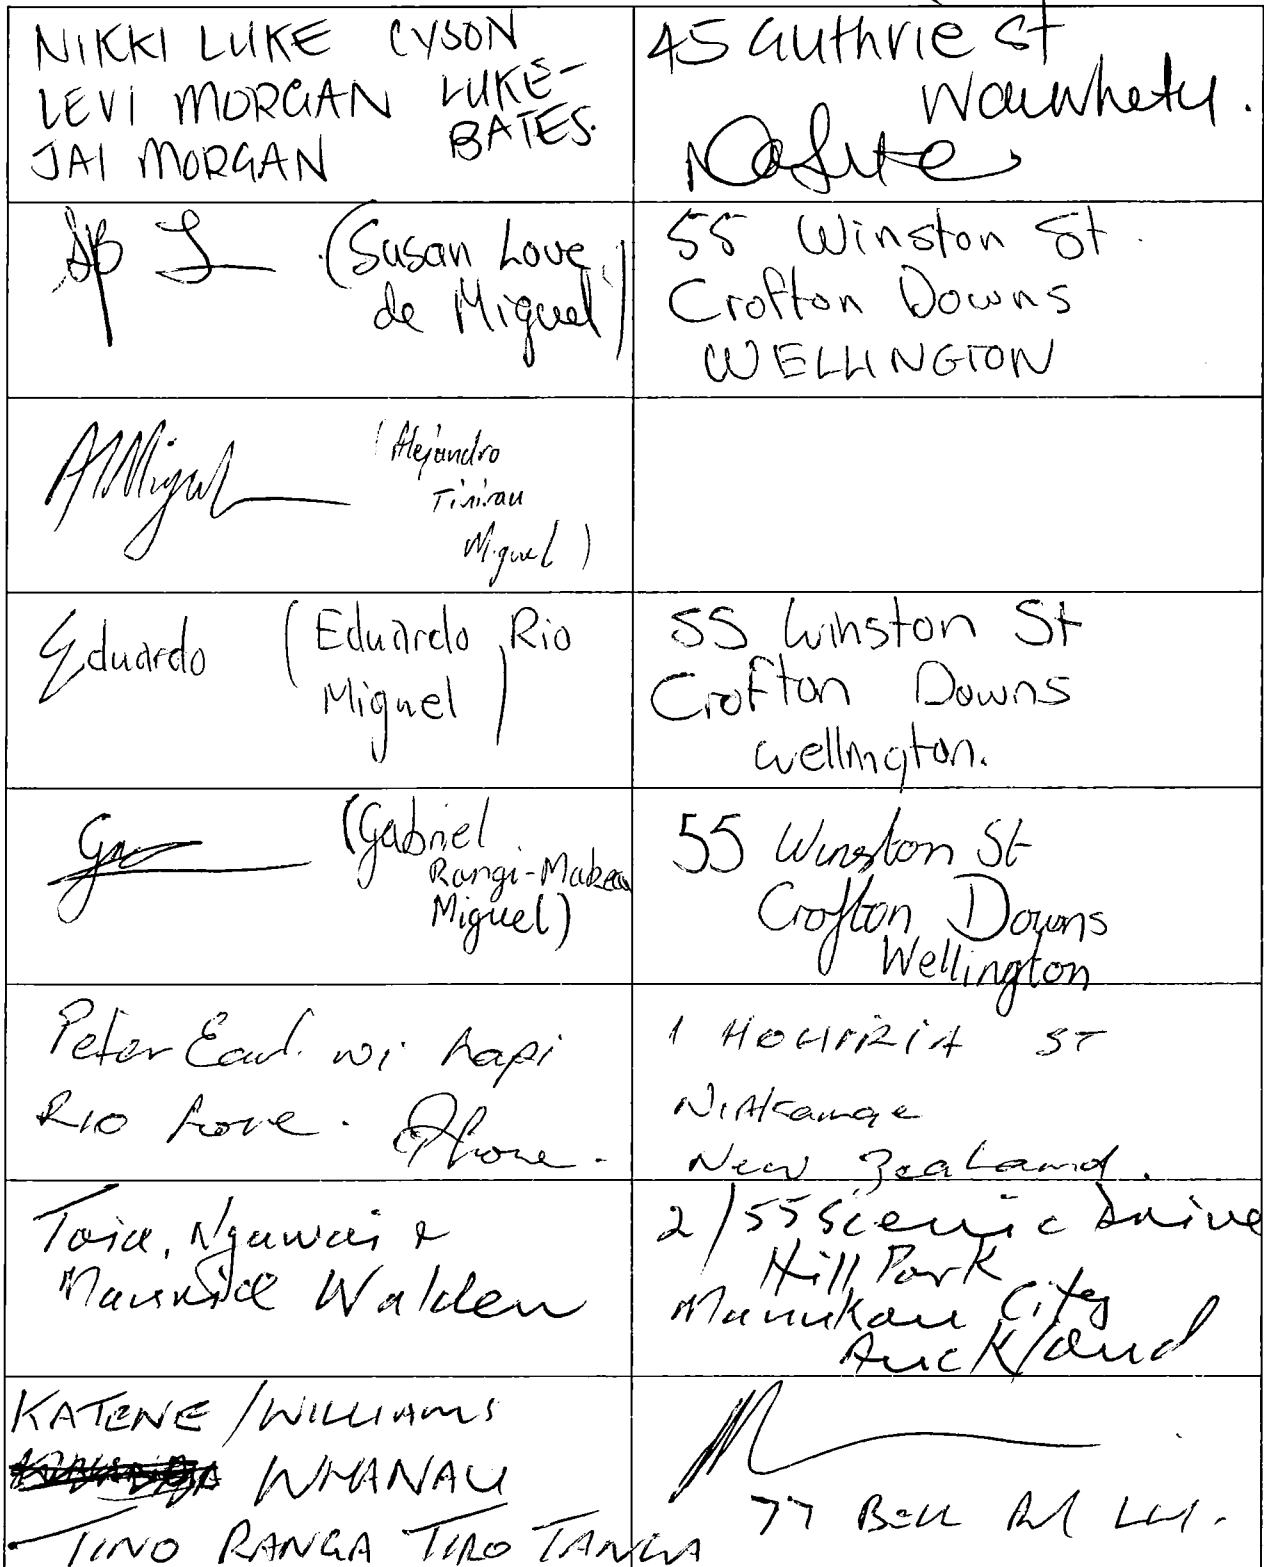 NIKKI LUKE CYSON
LEVI MORGAN LUKE-
JAI MORGAN BATES.
45 Guthrie St
Waiwhetu.
(Susan Love
de Miguel)
55 Winston St
Crofton Downs
WELLINGTON
AMiguel (Alejandro
Tinirau
Miguel)
Eduardo (Eduardo Rio
Miguel)
55 Winston St
Crofton Downs
Wellington.
(Gabriel
Rangi-Makea
Miguel)
55 Winston St
Crofton Downs
Wellington
Peter Earl. wi hapi
Rio Love.
1 ST
New Zealand.
Toia, Ngawai &
Walden
2/55 Scenic Drive
Hill Park
Manukau City
Auckland
KATENE / WILLIAMS
WHANAU
TINO RANGA TIRO TANGA
77 Bell Rd LH.